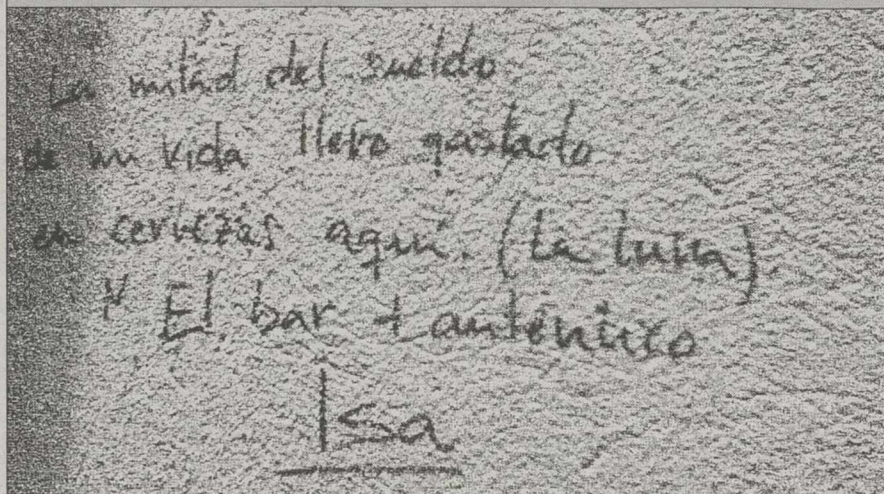 La mitad del sueldo
de mi vida llevo gastado
en cervezas aquí. (La luna).
* El bar + auténtico
Isa